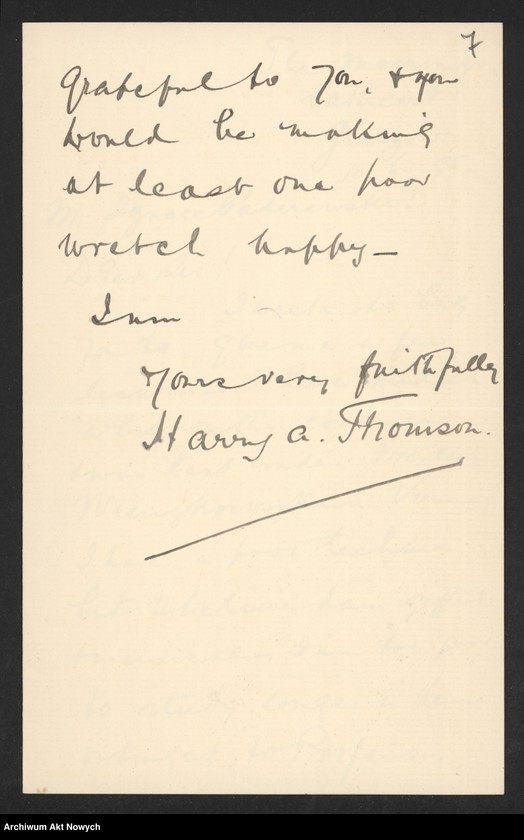 7
grateful to you, & you
would be making
at least one poor
wretch happy—
I am
Yours very faithfully
Harry A. Thomson.
Archiwum Akt Nowych